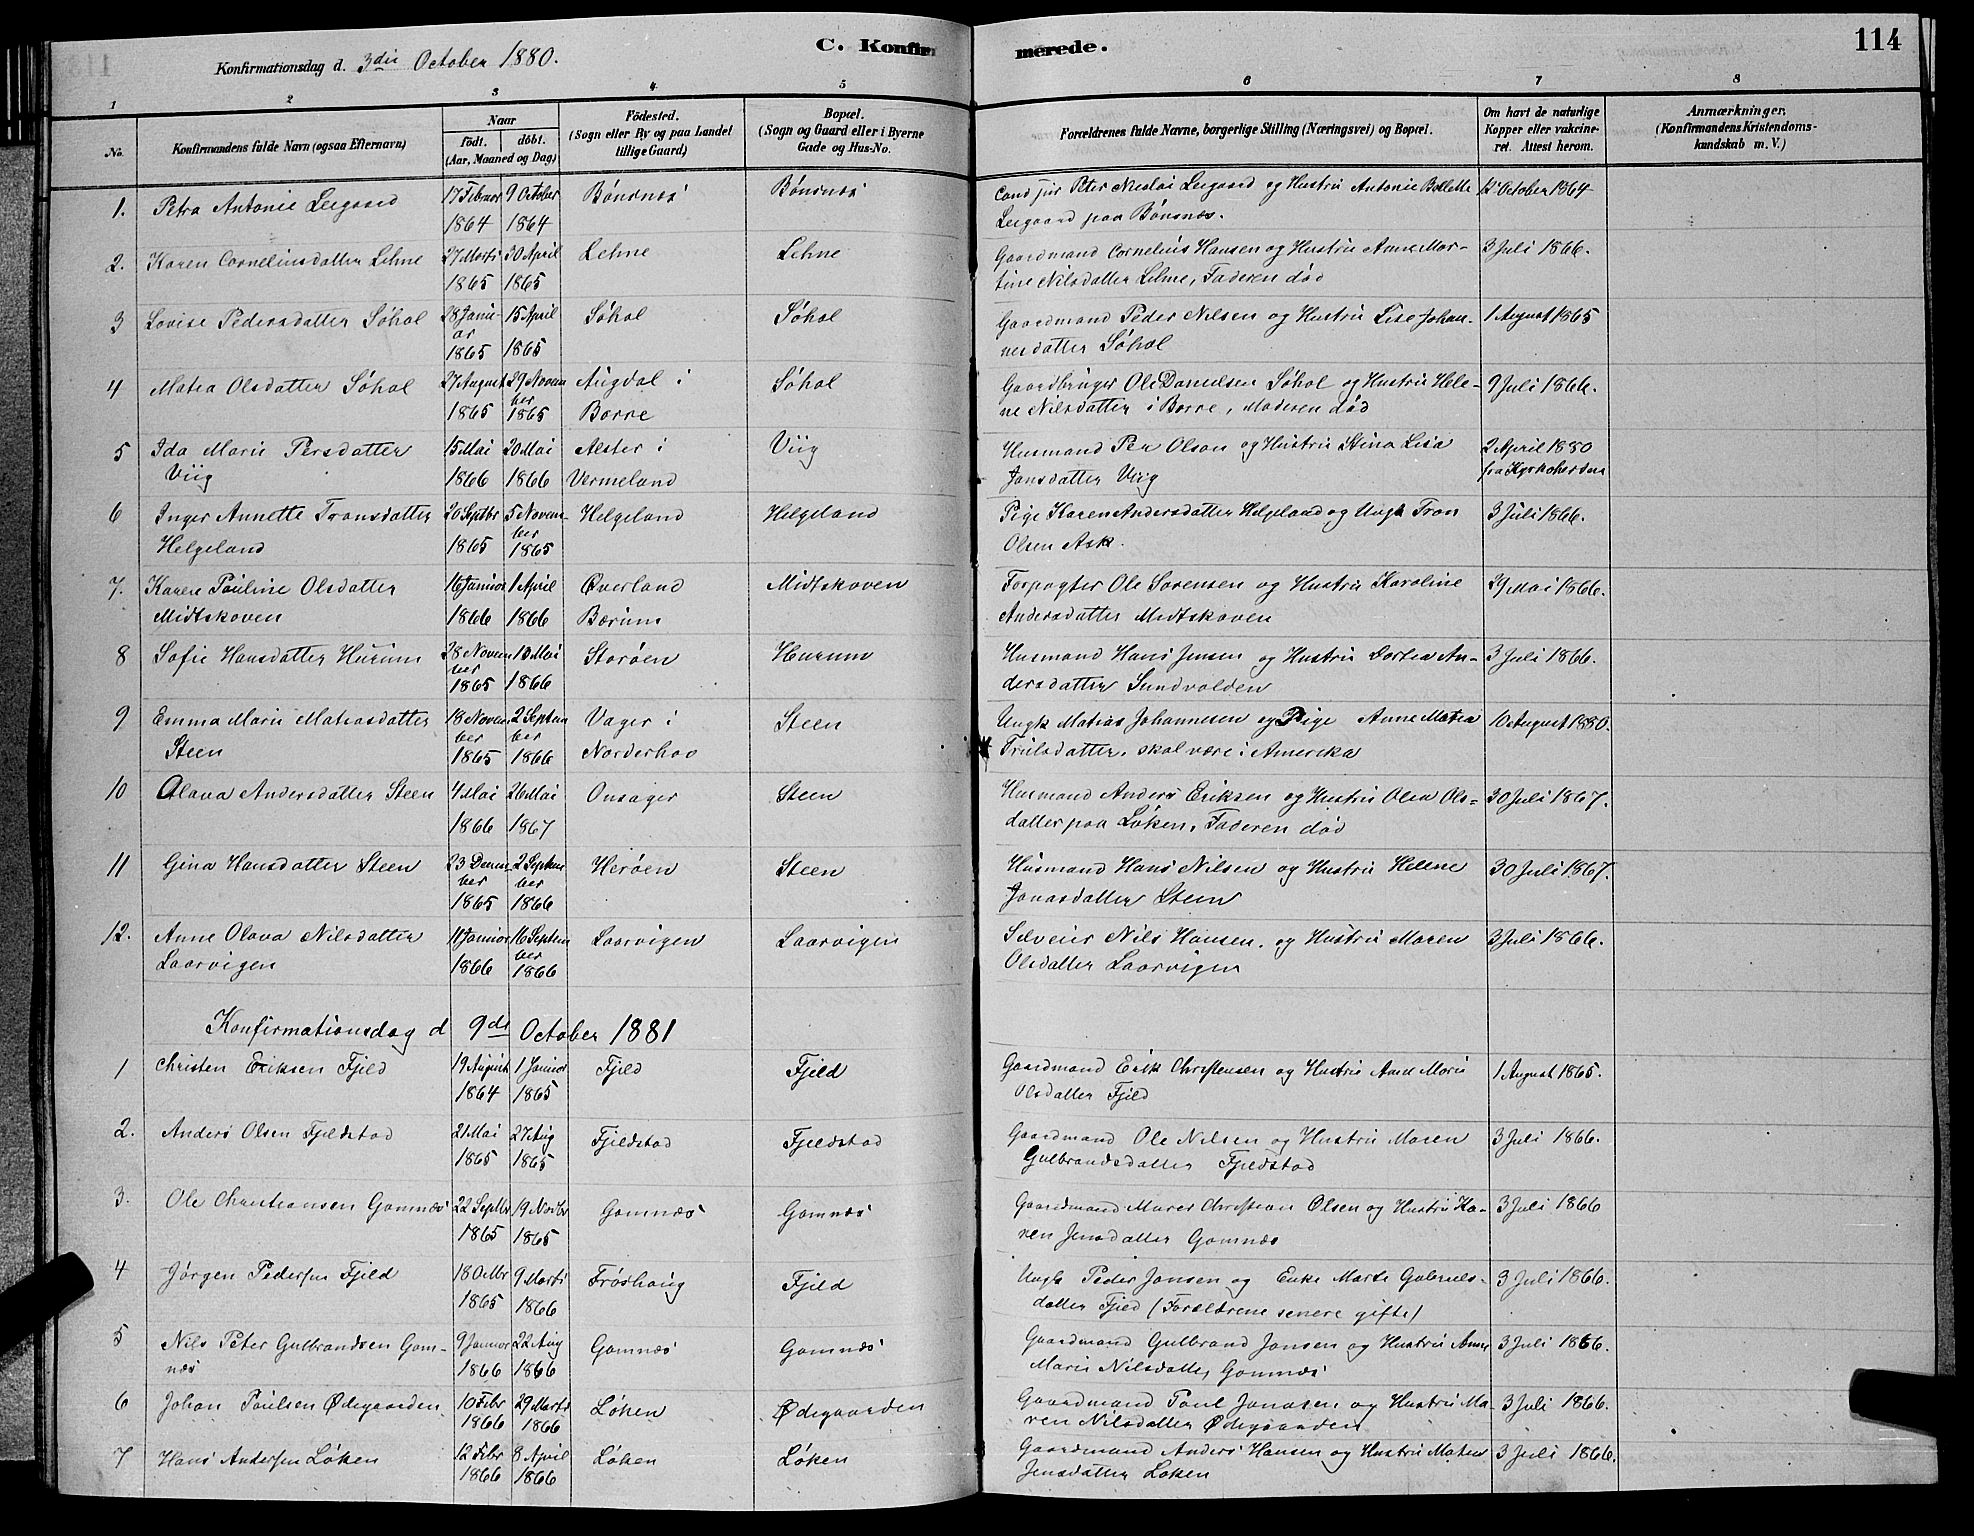 C. Konfirmerede.
114
Konfirmationsdag d. 3die October 1880.
1 2 3 4 5 6 7 8
No.
Konfirmandens fulde Navn (ogsaa Efternavn)
Naar
födt. döbt.
(Aar, Maaned og Dag)
Födested.
(Sogn eller By og paa Landet
tillige Gaard)
Bopæl.
(Sogn og Gaard eller i Byerne
Gade og Hus-No.
Forældrenes fulde Navne, borgerlige Stilling (Næringsvei) og Bopæl.
Om havt de naturlige
Kopper eller vakcine-
ret. Attest herom.
Anmærkninger,
(Konfirmandens Kristendoms-
kundskab m. V.)
1. Petra Antonie Leegaard 17 Februar 9 October Bönsnæs Bönsnæs Cand jur Peter Nicolai Leegaard og Hustru Antonie Bollette 12 October 1864
1864 1864 Leegaard paa Bönsnæs.
2. Karen Corneliusdatter Lehne 27 Marts 30 April Lehne Lehne Gaardmand Cornelius Hansen og Hustru Anne Mar- 3 Juli 1866.
1865 1865 tine Nilsdatter Lehne, Faderen död
3 Lovise Pedersdatter Söhol 28 Janu- 15 April Söhol Söhol Gaardmand Peder Nilsen og Hustru Lise Johan- 1 August 1865
ar
1865 1865 nesdatter Söhol
4 Matea Olsdatter Söhol 27 August 29 Novem Augdal i Söhol Gaardbruger Ole Danielsen Söhol og Hustru Hele- 9 Juli 1866.
ber
1865 1865 Borre ne Nilsdatter i Borre, Moderen död
5 Ida Marie Persdatter 15 Mai 20 Mai Alster i Viig Husmand Per Olson og Hustru Stina Lisa 2 April 1880
Viig 1866 1866 Vermeland Jansdatter Viig fra Kyrkoherden
6 Inger Annette Transdatter 20 Septbr 5 Novem- Helgeland Helgeland Pige Karen Andersdatter Helgeland og Ungk Tron 3 Juli 1866.
ber
Helgeland 1865 1865 Olsen Ask.
7. Karen Pauline Olsdatter 16 Januar 1 April Øverland Midtskoven Forpagter Ole Sorensen og Hustru Karoline Mai 1866.
Midtskoven 1866 1866 Bærum Andersdatter Midtskoven
8 Sofie Hansdatter Hurum 28 Novem 10 Mai Storöen Hurum Husmand Hans Jensen og Hustru Dortea An- 3 Juli 1866.
ber
1865 1866 dersdatter Sundvolden
9 Emma Marie Matiasdatter 18 Novem 2 Septem Vager i Steen Ungk Matias Johannesen og Pige Anne Matea 10 August 1880.
ber ber
Steen 1865 1866 Norderhov Trulsdatter, skal være i Amerika
10 Olava Andersdatter Steen 4 Mai 26 Mai Onsager Steen Husmand Anders Eriksen og Hustru Olea Ols- 30 Juli 1867.
1866 1867 datter paa Löken, Faderen död
11 Gina Hansdatter Steen 23 Decem- 2 Septem Heröen Steen Husmand Hans Nilsen og Hustru Helene 30 Juli 1867.
ber ber
1865 1866 Jonasdatter Steen
12. Anne Olava Nilsdatter 11 Januar 16 Septem Laarvigen Laarvigen Selveier Nils Hansen, og Hustru Maren 3 Juli 1866.
ber
Laarvigen 1866 1866 Olsdatter Laarvigen
Konfirmationsdag d 9de October 1881
1 Christen Eriksen Fjeld 19 August 1 Januar Fjeld Fjeld Gaardmand Erik Christensen og Hustru Anne Marie 1 August 1865.
1864 1865 Olsdatter Fjeld
2. Anders Olsen Fjeldstad 21 Mai 27 Aug Fjeldstad Fjeldstad Gaardmand Ole Nilsen og Hustru Maren 3 Juli 1866.
1865 1865 Gulbrandsdatter Fjeldstad
3. Ole Christiansen Gomnæs 22 Septbr 19 Novbr Gomnæs Gomnæs Gaardmand Christian Olsen og Hustru Ka- 3 Juli 1866
1865 1865 ren Jensdatter Gomnæs
4 Jörgen Pedersen Fjeld 18 9 Marts Fröshaug Fjeld Ungk Peder Jansen og Enke Marte Gabriels- 3 Juli 1866.
1865 1866 datter Fjeld (Forældrene senere gifte)
5 Nils Peter Gulbrandsen Gom- 9 Januar 22 Aug Gomnæs Gomnæs Gaardmand Gulbrand Jansen og Hustru Anne 3 Juli 1866.
næs 1866 1866 Marie Nilsdatter Gomnæs
6 Johan Paulsen Ødegaarden 10 Febr 29 Marts Löken Ødegaarden Gaardmand Paul Jonasen og Hustru Ma- 3 Juli 1866.
1866 1866 ren Nilsdatter Ødegaarden
7 Hans Andersen Löken 12 Febr 8 April Löken Löken Gaardmand Anders Hansen og Hustru Maren 3 Juli 1866.
1866 1866 Jensdatter Löken